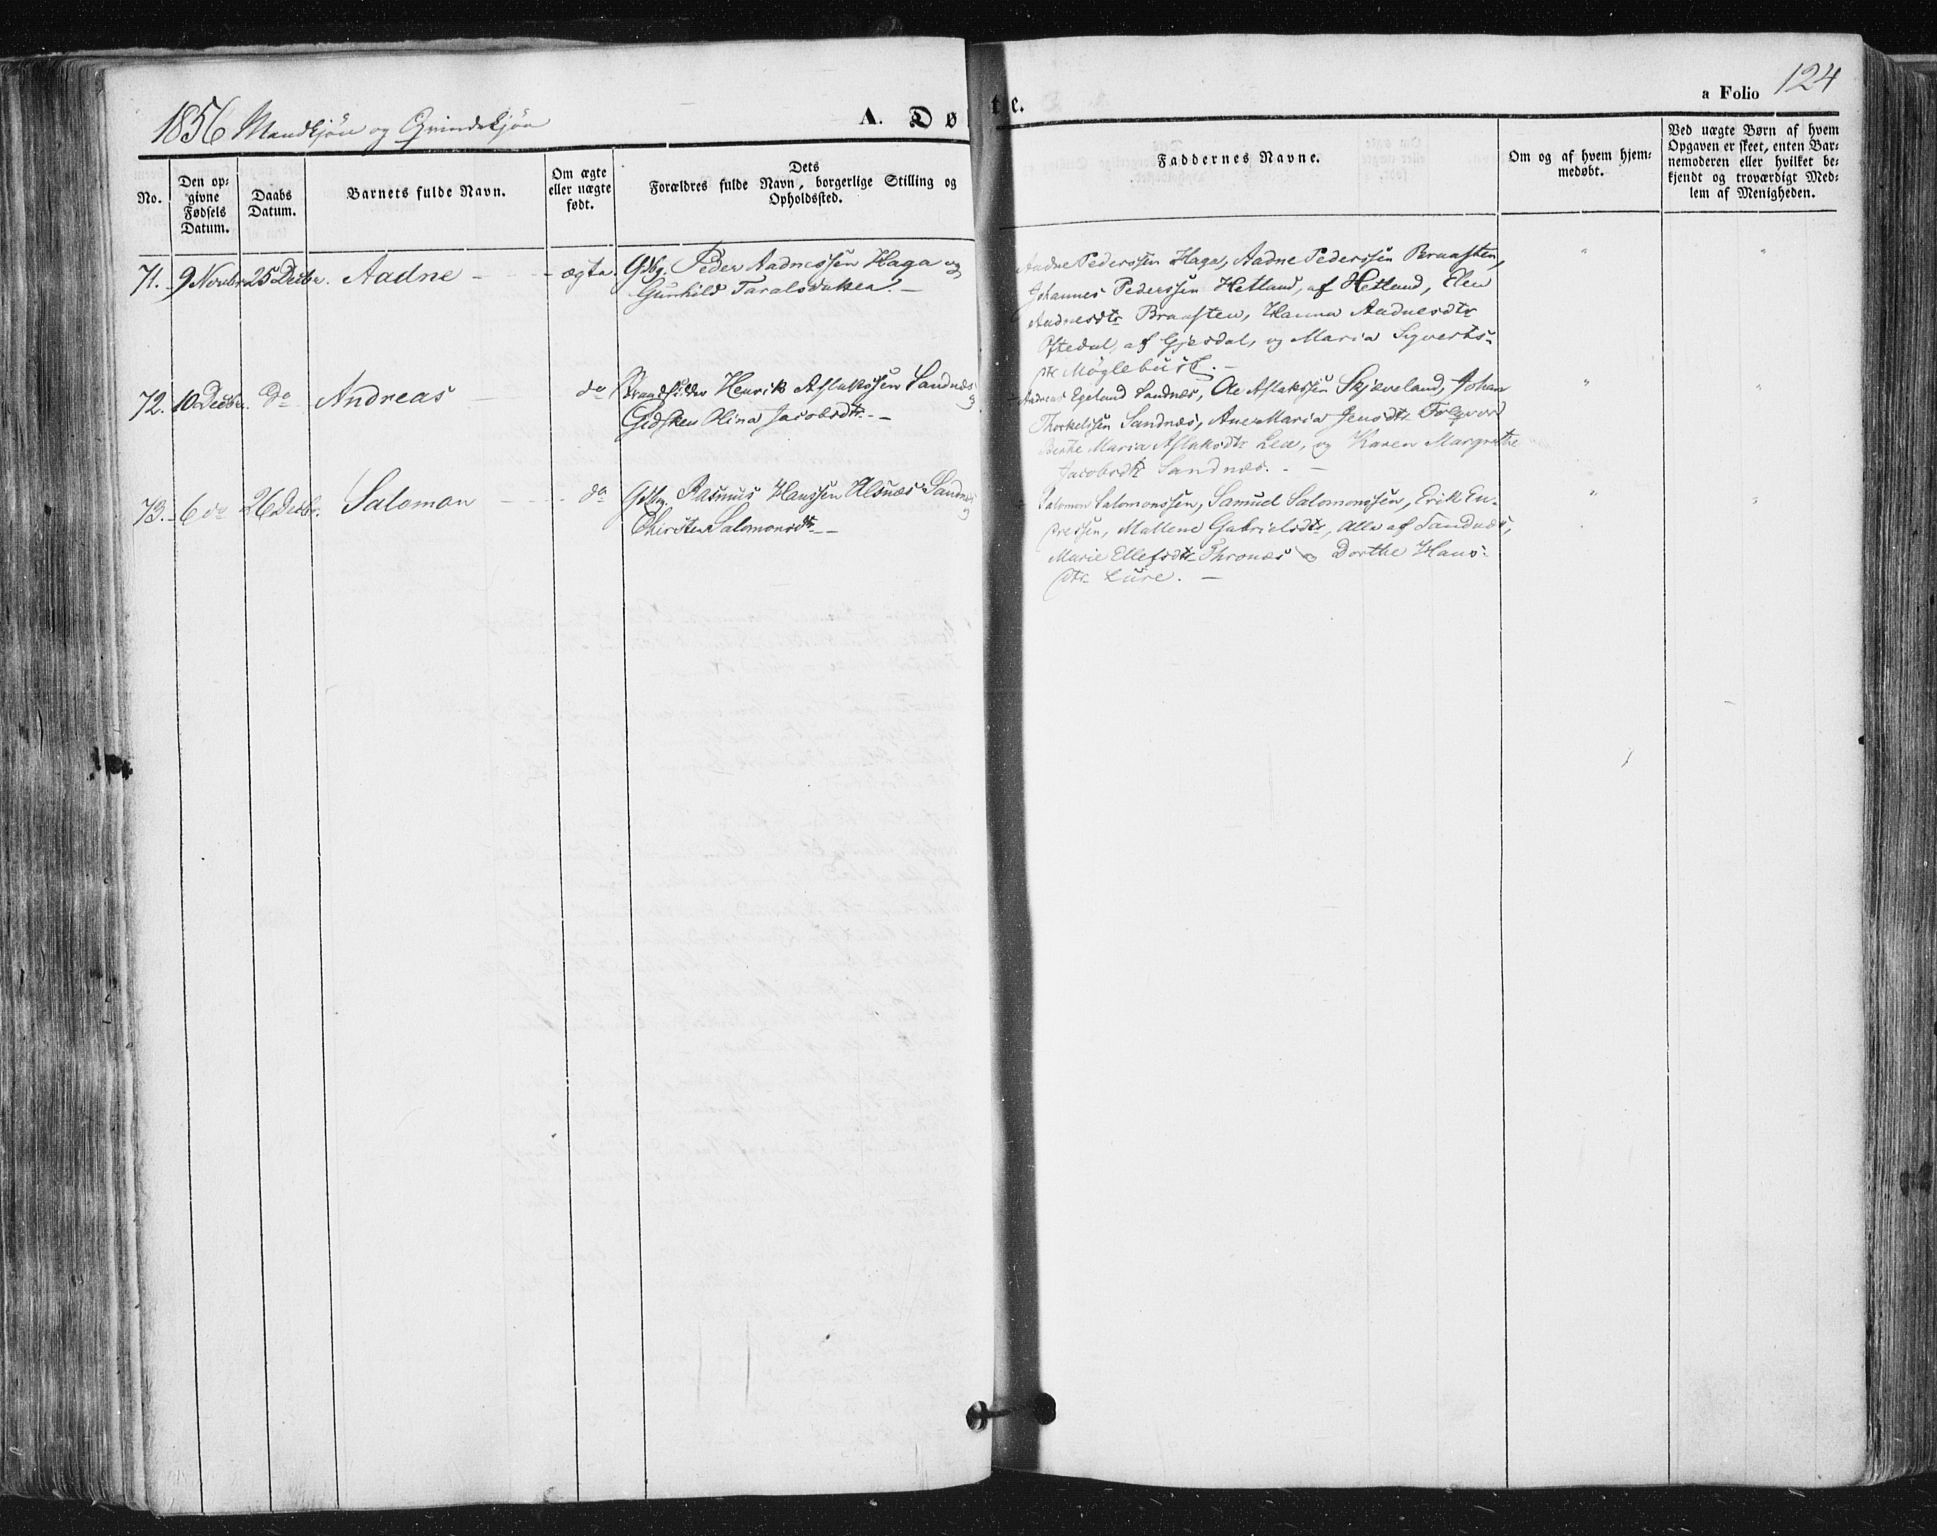 1856 Mandkjøn og Qvindekjøn
A. Døbte.
a Folio 124
No.
Den op-
givne
Fødsels
Datum.
Daabs
Datum.
Barnets fulde Navn.
Om ægte
eller uægte
født.
Dets
Forældres fulde Navn, borgerlige Stilling og
Opholdssted.
Faddernes Navne.
Om og af hvem hjem-
medøbt.
Ved uægte Børn af hvem
Opgaven er skeet, enten Bar-
nemoderen eller hvilket be-
kjendt og troværdigt Med-
lem af Menigheden.
71. 9 Novbr 25 Decbr. Aadne ægte Gdbg. Peder Aadnessen Haga og
Gunhild Taralsdatter. -
Aadne Pederssen Haga, Aadne Pederssen Braasten,
Johannes Pederssen Hetland, af Hetland, Elen
Aadnesdtr Braasten, Hanna Aadnesdtr
Oftedal, af Gjesdal, og Maria Syverts-
dtr Møglebust. -
72. 10 Decbr. do Andreas do Henrik Aslakssen Sandnæs og
Gidsken Olina Jacobsdtr. -
Andreas Egeland Sandnæs, Ole Aslakssen Skjæveland, Johan
Thorkelssen Sandnæs, Ane Maria Jensdtr
Berthe Maria Aslaksdtr Lea, og Karen Margrethe
Jacobsdtr Sandnæs. -
73. 6 do 26 Decbr. Salomon do Gdbg. Rasmus Hanssen Alsnæs Sandnæs og
Chirsten Salomonsdtr. -
Salomon Salomonssen, Samuel Salomonssen, Erik En-
dressen, Mallene Gabrielsdtr, Alle af Sandnæs,
Marie Ellefsdtr Thronæs og Dorthe Hans-
dtr Lure. -